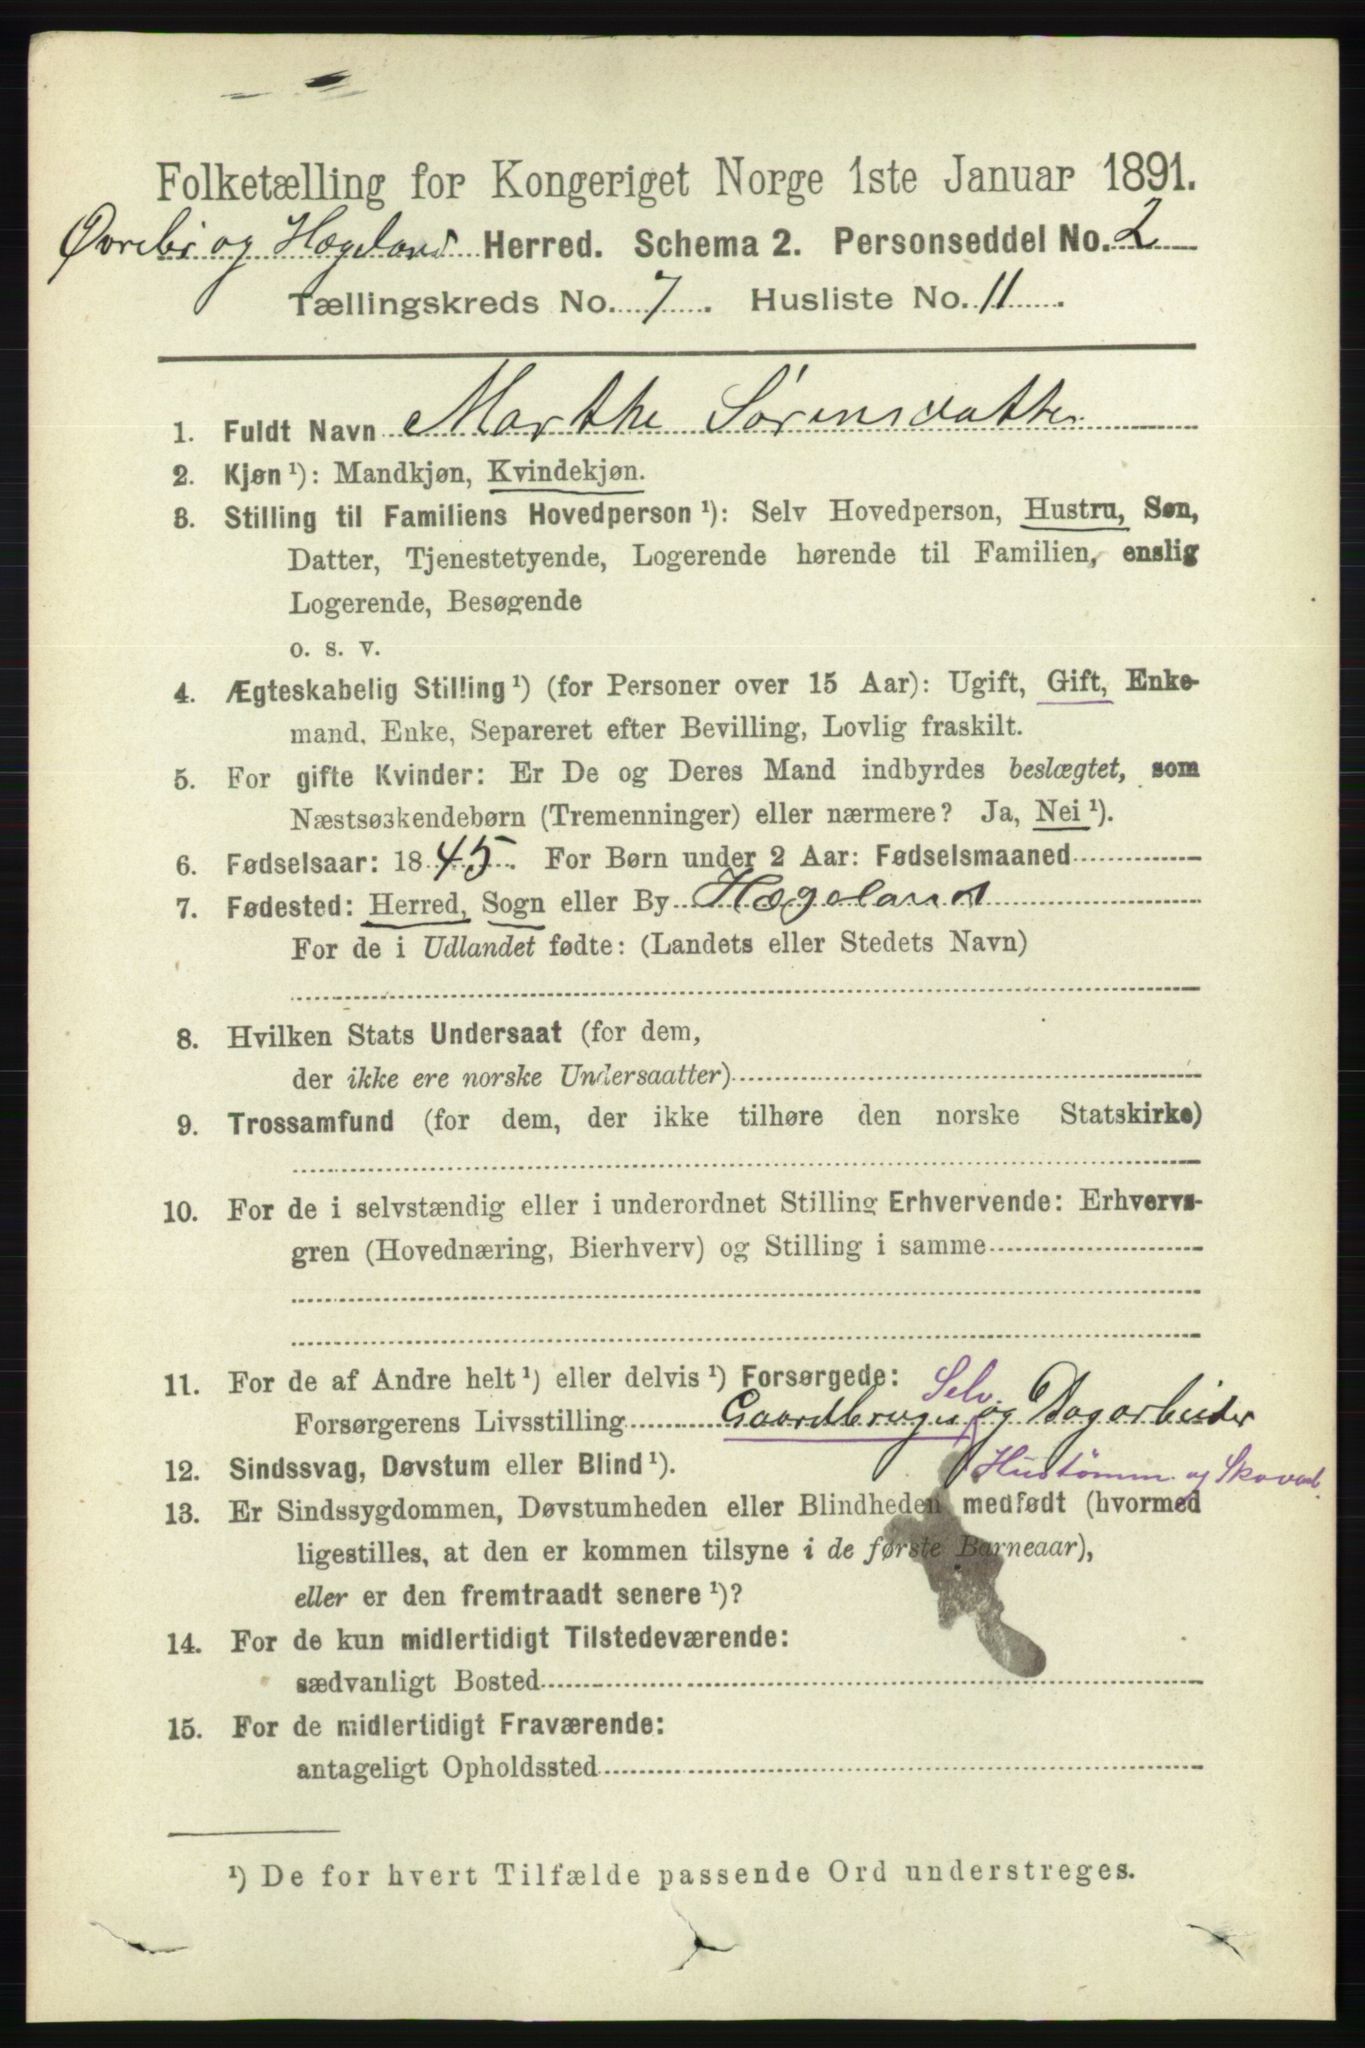 Folketælling for Kongeriget Norge 1ste Januar 1891.
Øvrebø og Hægeland Herred. Schema 2. Personseddel No. 2
Tællingskreds No. 7. Husliste No. 11.
1. Fuldt Navn Marthe Sørensdatter
2. Kjøn ¹): Mandkjøn, Kvindekjøn.
3. Stilling til Familiens Hovedperson ¹): Selv Hovedperson, Hustru, Søn,
Datter, Tjenestetyende, Logerende hørende til Familien, enslig
Logerende, Besøgende
o. s. v.
4. Ægteskabelig Stilling ¹) (for Personer over 15 Aar): Ugift, Gift, Enke-
mand, Enke, Separeret efter Bevilling, Lovlig fraskilt.
5. For gifte Kvinder: Er De og Deres Mand indbyrdes beslægtet, som
Næstsøskendebørn (Tremenninger) eller nærmere? Ja, Nei ¹).
6. Fødselsaar: 1845. For Børn under 2 Aar: Fødselsmaaned
7. Fødested: Herred, Sogn eller By Hægeland
For de i Udlandet fødte: (Landets eller Stedets Navn)
8. Hvilken Stats Undersaat (for dem,
der ikke ere norske Undersaatter)
9. Trossamfund (for dem, der ikke tilhøre den norske Statskirke)
10. For de i selvstændig eller i underordnet Stilling Erhvervende: Erhvervs-
gren (Hovednæring, Bierhverv) og Stilling i samme
11. For de af Andre helt ¹) eller delvis ¹) Forsørgede: Selv.
Forsørgerens Livsstilling Gaardbruger og Dagarbeider
Hustømm. og Skovarb.
12. Sindssvag, Døvstum eller Blind ¹).
13. Er Sindssygdommen, Døvstumheden eller Blindheden medfødt (hvormed
ligestilles, at den er kommen tilsyne i de første Barneaar),
eller er den fremtraadt senere ¹)?
14. For de kun midlertidigt Tilstedeværende:
sædvanligt Bosted
15. For de midlertidigt Fraværende:
antageligt Opholdssted
¹) De for hvert Tilfælde passende Ord understreges.